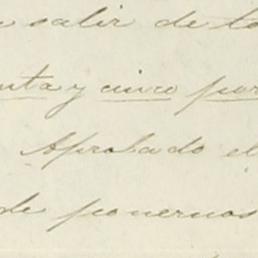 salir de
y cinco por
Aprobado el
de ponernos